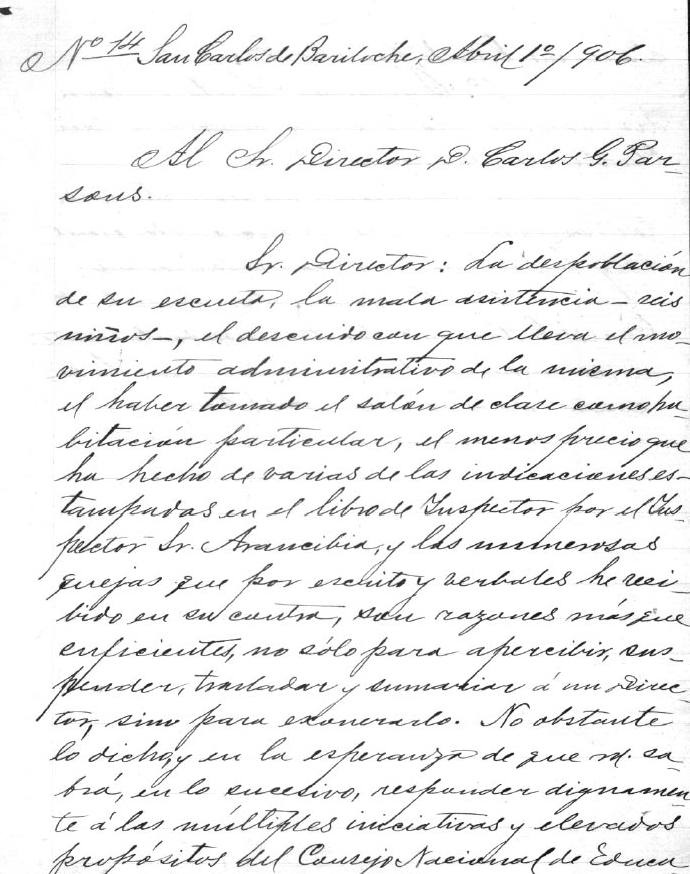 Nº 14 San Carlos de Bariloche, Abril 1º/906.
Al Sr. Director D. Carlos G. Par-
sons.
Sr. Director: La despoblación
de su escuela, la mala asistencia – seis
niños –, el descuido con que lleva el mo-
vimiento administrativo de la misma,
el haber tomado el salón de clase como ha-
bitación particular, el menosprecio que
ha hecho de varias de las indicaciones es-
tampadas en el libro de Inspector por el Ins-
pector Sr. Arancibia, y las numerosas
quejas que por escrito y verbales he reci-
bido en su contra, son razones más que
suficientes, no sólo para apercibir, sus-
pender, trasladar y sumariar á un Direc-
tor, sino para exonerarlo. No obstante
lo dicho, y en la esperanza de que vd. sa-
brá, en lo sucesivo, responder dignamen-
te á las múltiples iniciativas y elevados
propósitos del Consejo Nacional de Educa-